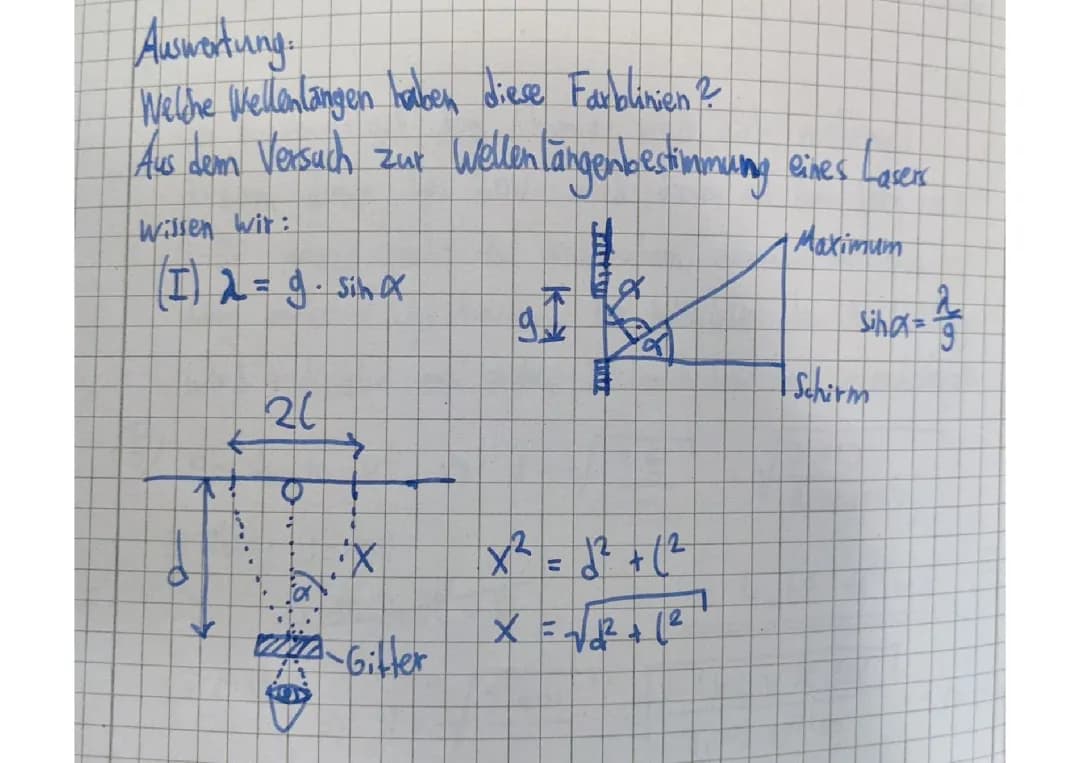 Auswertung:
Welche Wellenlängen haben diese Farblinien?
Aus dem Versuch zur Wellenlängenbestimmung eines Lasers
wissen wir:
(I) λ = g · sin α
Maximum
α
g
α
sin α = λ/g
Schirm
2l
d
x
α
Gitter
x² = d² + l²
x = √(d² + l²)